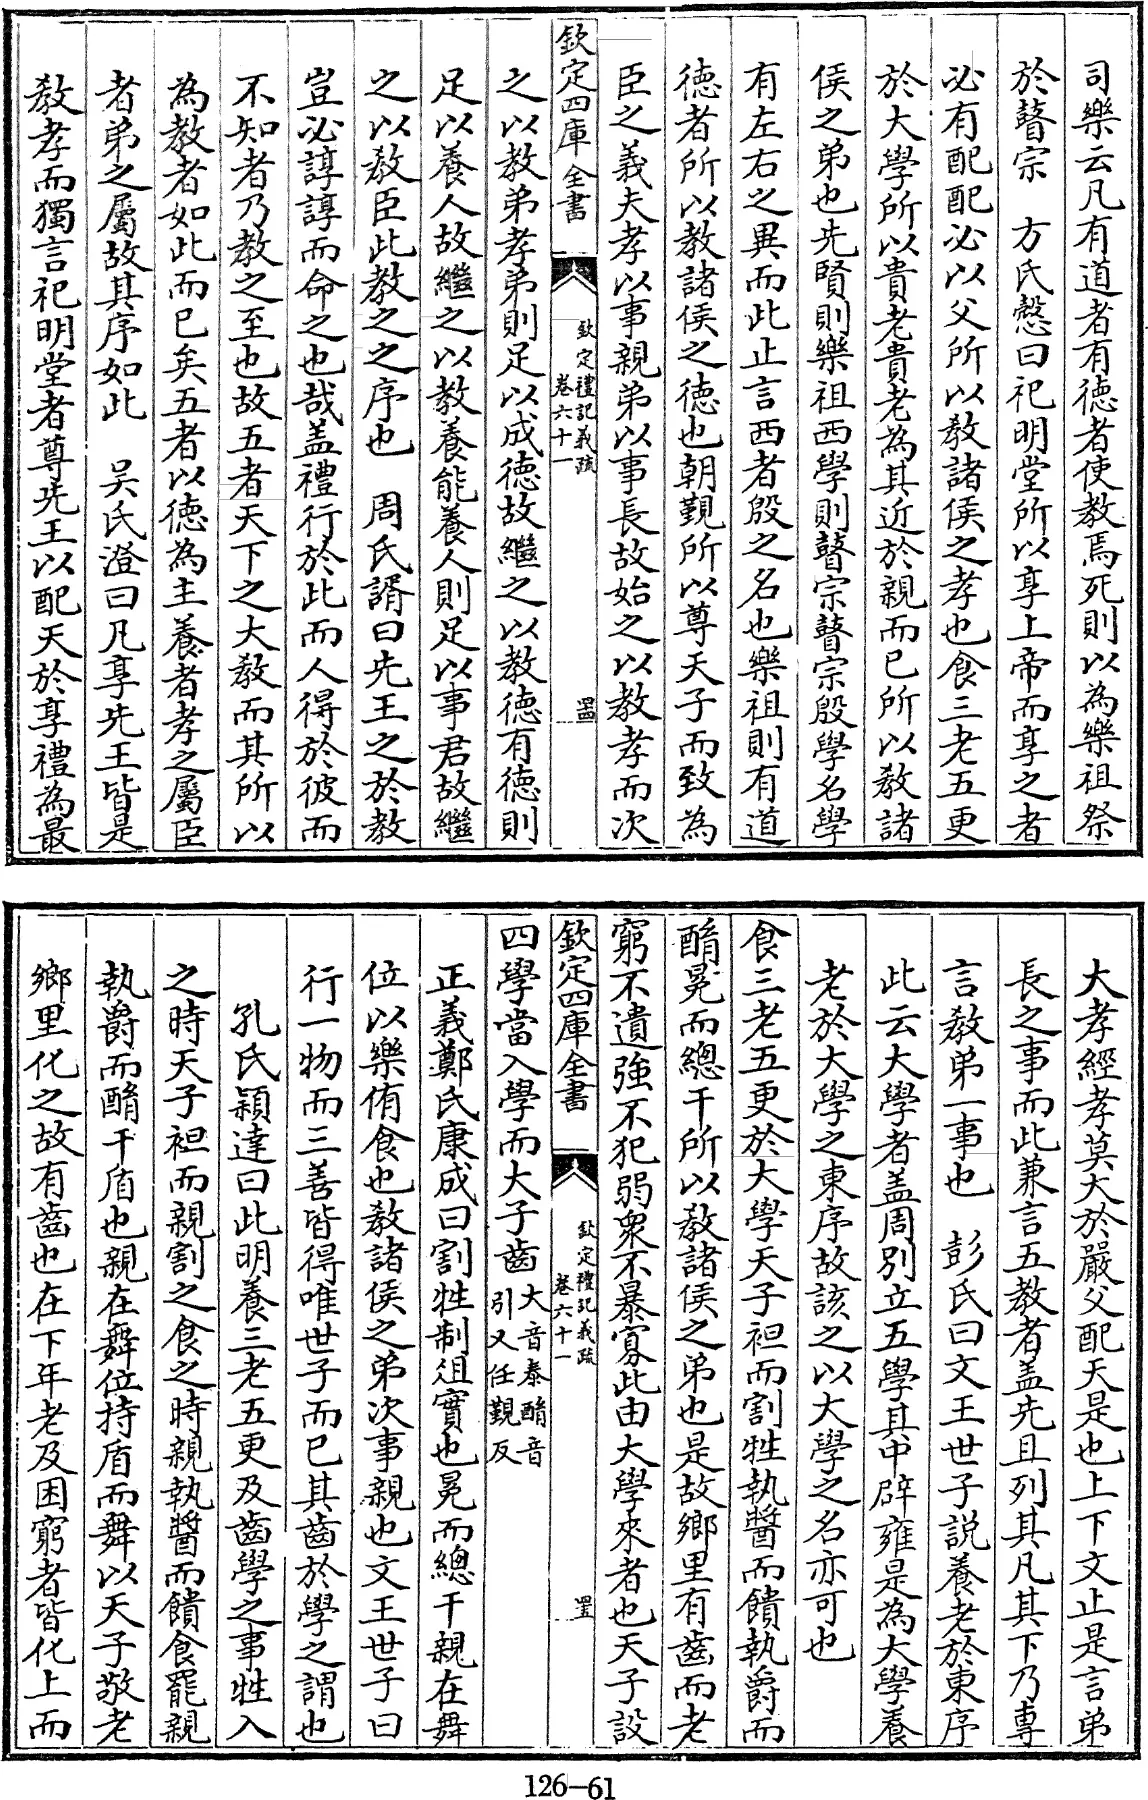 司樂云凡有道者有德者使教焉死則以為樂祖祭
於瞽宗　方氏慤曰祀明堂所以享上帝而享之者
必有配配必以父所以教諸侯之孝也食三老五更
於大學所以貴老貴老為其近於親而已所以教諸
侯之弟也先賢則樂祖西學則瞽宗瞽宗殷學名學
有左右之異而此止言西者殷之名也樂祖則有道
德者所以教諸侯之德也朝覲所以尊天子而致為
臣之義夫孝以事親弟以事長故始之以教孝而次
欽定四庫全書
欽定禮記義疏
卷六十一
罒
之以教弟孝弟則足以成德故繼之以教德有德則
足以養人故繼之以教養能養人則足以事君故繼
之以教臣此教之之序也　周氏諝曰先王之於教
豈必諄諄而命之也哉盖禮行於此而人得於彼而
不知者乃教之至也故五者天下之大教而其所以
為教者如此而已矣五者以德為主養者孝之屬臣
者弟之屬故其序如此　吴氏澄曰凡享先王皆是
教孝而獨言祀明堂者尊先王以配天於享禮為最
大孝經孝莫大於嚴父配天是也上下文止是言弟
長之事而此兼言五教者盖先且列其凡其下乃專
言教弟一事也　彭氏曰文王世子説養老於東序
此云大學者盖周別立五學其中辟雍是為大學養
老於大學之東序故該之以大學之名亦可也
食三老五更於大學天子袒而割牲執醬而饋執爵而
酳冕而總干所以教諸侯之弟也是故鄉里有齒而老
窮不遺強不犯弱衆不暴寡此由大學來者也天子設
欽定四庫全書
欽定禮記義疏
卷六十一
四學當入學而大子齒大音泰酳音
引又任覲反
正義鄭氏康成曰割牲制俎實也冕而總干親在舞
位以樂侑食也教諸侯之弟次事親也文王世子曰
行一物而三善皆得唯世子而已其齒於學之謂也
孔氏穎達曰此明養三老五更及齒學之事牲入
之時天子袒而親割之食之時親執醬而饋食罷親
執爵而酳干盾也親在舞位持盾而舞以天子敬老
鄉里化之故有齒也在下年老及困窮者皆化上而
126-61